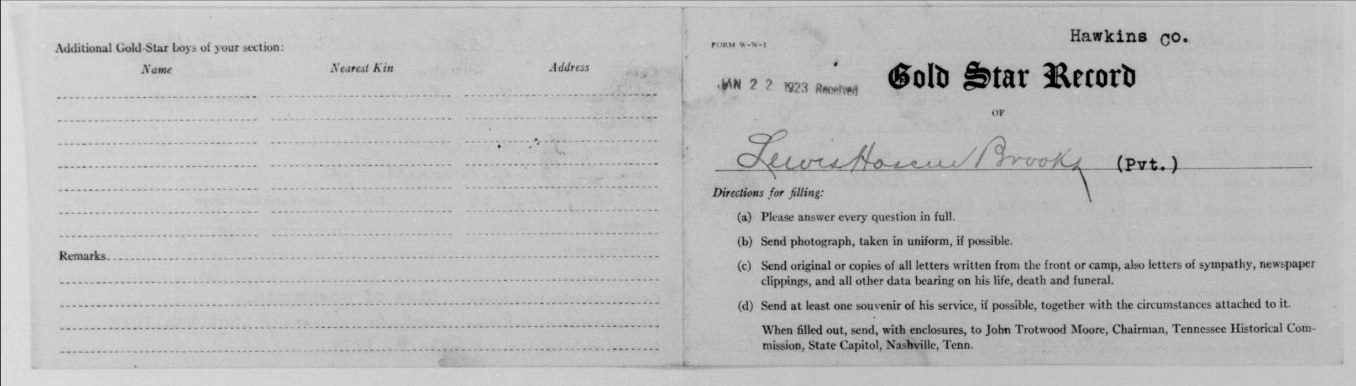 Additional Gold-Star boys of your section:
Name Nearest Kin Address
Remarks
FORM W-W-1
Hawkins Co.
JAN 22 1923 Received
Gold Star Record
OF
Lewis Brooks (Pvt.)
Directions for filling:
(a) Please answer every question in full.
(b) Send photograph, taken in uniform, if possible.
(c) Send original or copies of all letters written from the front or camp, also letters of sympathy, newspaper
clippings, and all other data bearing on his life, death and funeral.
(d) Send at least one souvenir of his service, if possible, together with the circumstances attached to it.
When filled out, send, with enclosures, to John Trotwood Moore, Chairman, Tennessee Historical Com-
mission, State Capitol, Nashville, Tenn.